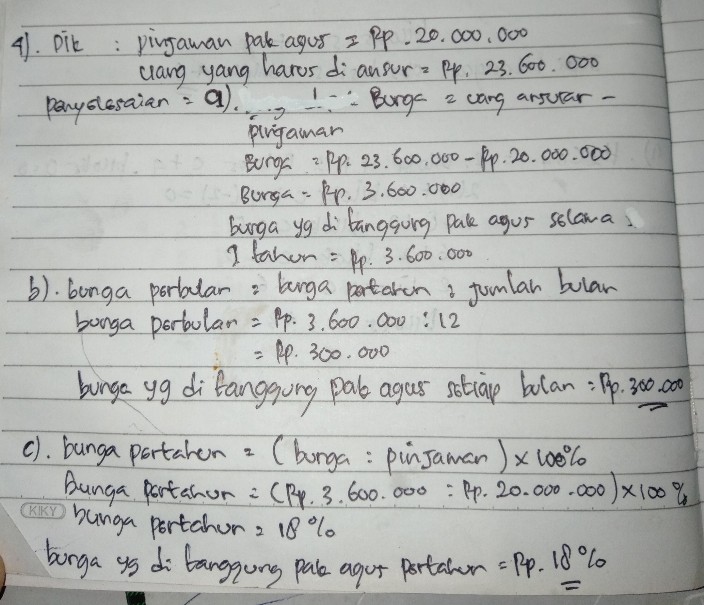 4). Dik : pinjaman pak agus = Rp. 20.000.000
uang yang harus di ansur = Rp. 23.600.000
penyelesaian = a). Bunga = uang ansuran -
pinjaman
Bunga = Rp. 23.600.000 - Rp. 20.000.000
Bunga = Rp. 3.600.000
bunga yg di tanggung pak agus selama
1 tahun = Rp. 3.600.000
b). bunga perbulan = bunga pertahun : jumlah bulan
bunga perbulan = Rp. 3.600.000 : 12
= Rp. 300.000
bunga yg di tanggung pak agus setiap bulan = Rp. 300.000
c). bunga pertahun = (bunga : pinjaman) x 100%
Bunga pertahun = (Rp. 3.600.000 : Rp. 20.000.000) x 100%
KIKY bunga pertahun = 18%
bunga yg di tanggung pak agus pertahun = Rp. 18%